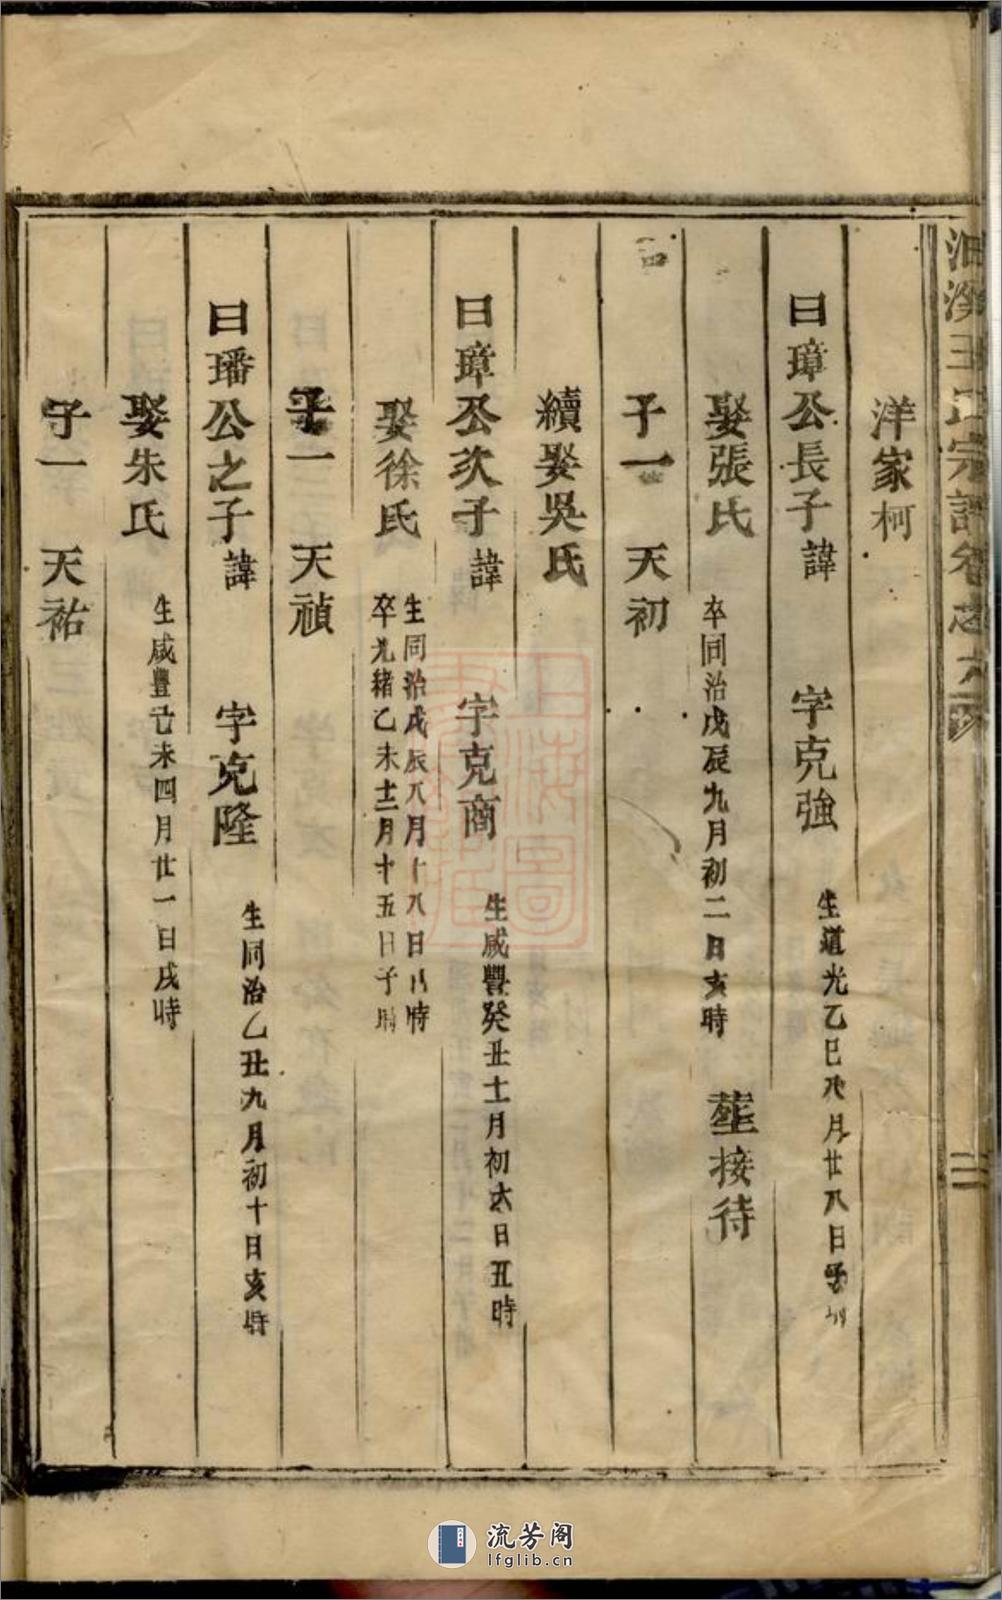 王氏宗譜卷之六
二
洋家柯
曰璋公長子諱 字克強 生道光乙巳八月廿八日子時
娶張氏 卒同治戊辰九月初二日亥時 塟接待
子一 天初
續娶吳氏
曰璋公次子諱 字克商 生咸豐癸丑十一月初六日丑時
娶徐氏 生同治戊辰八月十八日 時
卒光緒乙未十二月十五日子時
子一 天禎
曰璠公之子諱 字克隆 生同治乙丑九月初十日亥時
娶朱氏 生咸豐己未四月廿一日戌時
子一 天祐
流芳阁
lfglib.cn